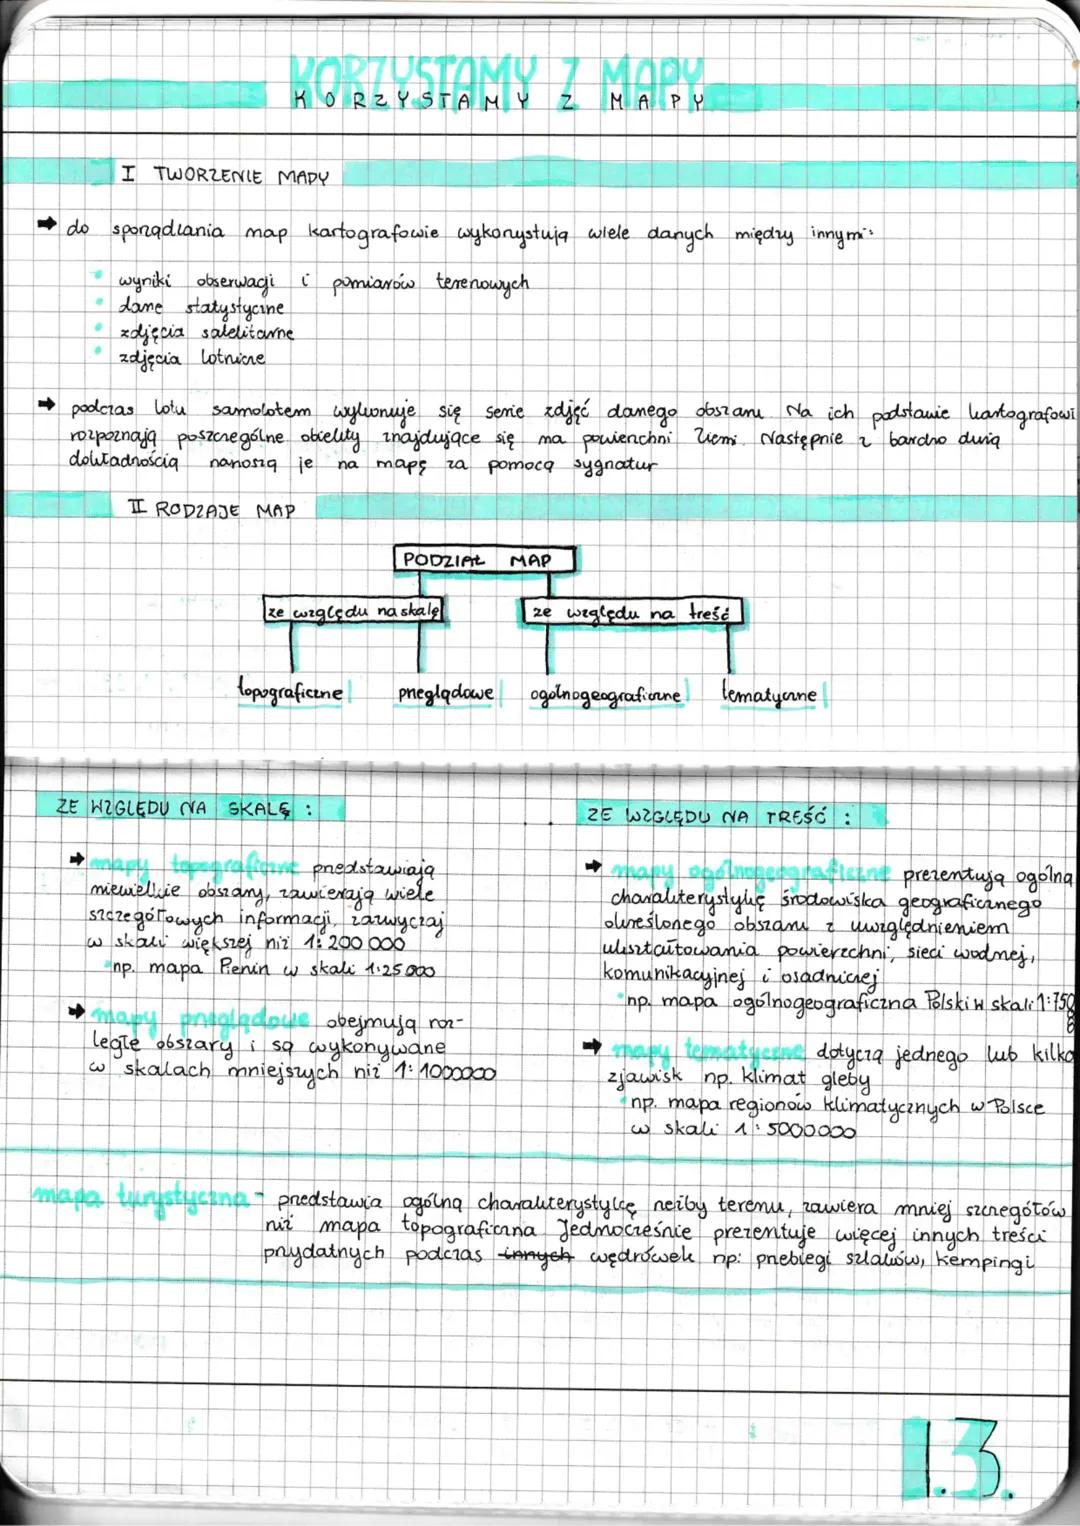 KORZYSTAMY Z MAPY
KORZYSTAMY Z MAPY
I TWORZENIE MAPY
→ do sporządzania map kartografowie wykorzystują wiele danych między innymi:
• wyniki obserwacji i pomiarów terenowych
• dane statystyczne
• zdjęcia satelitarne
• zdjęcia lotnicze
→ podczas lotu samolotem wykonuje się serie zdjęć danego obszaru Na ich podstawie kartografowi
rozpoznają poszczególne obiekty znajdujące się na powierzchni Ziemi. Następnie z bardzo dużą
dokładnością nanoszą je na mapę za pomocą sygnatur
II RODZAJE MAP
PODZIAŁ MAP
ze względu na skalę ze względu na treść
topograficzne przeglądowe ogólnogeograficzne tematyczne
ZE WZGLĘDU NA SKALĘ :
→ mapy topograficzne przedstawiają
niewielkie obszary, zawierają wiele
szczegółowych informacji, zazwyczaj
w skali większej niż 1:200 000
• np. mapa Pienin w skali 1:25 000
→ mapy przeglądowe obejmują roz-
ległe obszary i są wykonywane
w skalach mniejszych niż 1:1000000
ZE WZGLĘDU NA TREŚĆ :
→ mapy ogólnogeograficzne prezentują ogólną
charakterystykę środowiska geograficznego
określonego obszaru z uwzględnieniem
ukształtowania powierzchni, sieci wodnej,
komunikacyjnej i osadniczej
• np. mapa ogólnogeograficzna Polski w skali 1:750
→ mapy tematyczne dotyczą jednego lub kilko
zjawisk np. klimat gleby
• np. mapa regionów klimatycznych w Polsce
w skali 1:5000000
mapa turystyczna - przedstawia ogólną charakterystykę rzeźby terenu, zawiera mniej szczegółów
niż mapa topograficzna Jednocześnie prezentuje więcej innych treści
przydatnych podczas innych wędrówek np: przebiegi szlaków, kempingi
1.3.